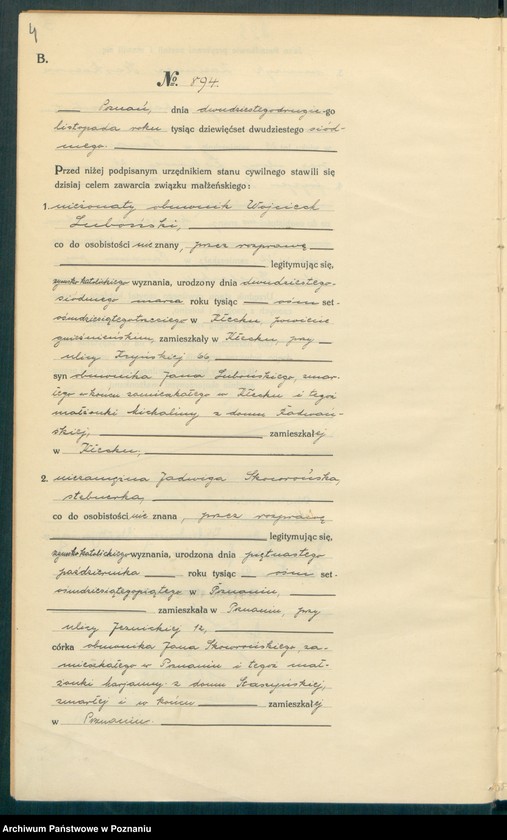 4
B.
No. 894.
Poznań, dnia dwudziestegodrugie-go
listopada roku tysiąc dziewięćset dwudziestego siód-
mego.
Przed niżej podpisanym urzędnikiem stanu cywilnego stawili się
dzisiaj celem zawarcia związku małżeńskiego:
1. nieżonaty obuwnik Wojciech
Luboński,
co do osobistości nie znany, przez rozprawę
legitymując się,
rzymskokatolickiego wyznania, urodzony dnia dwudziestego-
siódmego marca roku tysiąc ośm set-
ośmdziesiątegotrzeciego w Kłecku, powiecie
gnieźnieńskim, zamieszkały w Kłecku, przy
ulicy 66
syn obuwnika Jana Lubońskiego, zmar-
łego w końcu zamieszkałego w Kłecku i tegoż
małżonki Michaliny z domu
zamieszkałej
w Kłecku,
2. niezamężna Jadwiga Skoworońska,
co do osobistości nie znana, przez rozprawę
legitymując się,
rzymskokatolickiego wyznania, urodzona dnia piętnastego
października roku tysiąc ośm set-
ośmdziesiątegopiątego w Poznaniu,
zamieszkała w Poznaniu, przy
ulicy 12,
córka obuwnika Jana Skoworońskiego, za-
mieszkałego w Poznaniu i tegoż mał-
żonki Marjanny z domu Staszyńskiej,
zmarłej i w końcu zamieszkałej
w Poznaniu.
Archiwum Państwowe w Poznaniu